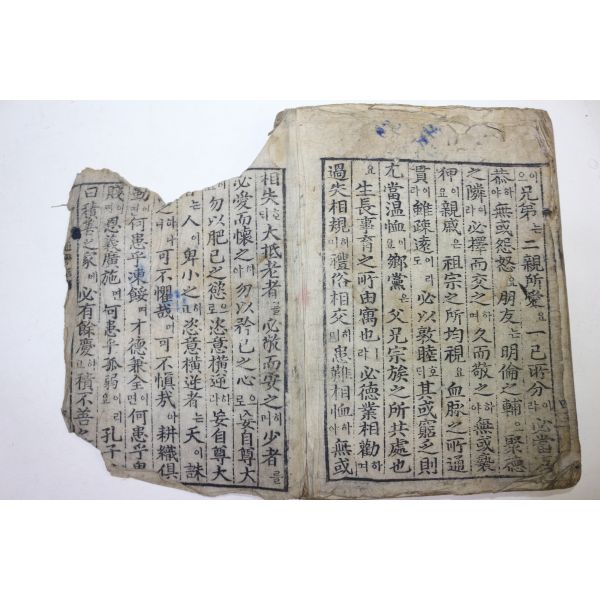 兄弟는 二親所愛요 一己所分이라 必當
恭하야 無或怨怒요 朋友는 明倫之輔요 聚德
之隣이라 必擇而交之며 久而敬之하야 無或褻
狎요 親戚은 祖宗之所均視요 血脉之所通
貫이라 雖疎遠이리도 必以敦睦하며 其或窮乏則
尤當溫恤이요 鄕黨은 父兄宗族之所共處也
요 生長事育之所由寓也라 必德業相勸하며
過失相規하며 禮俗相交하며 患難相恤하야 無或
相失이니라 大抵老者를 必敬而安之하며 少者를
必愛而懷之하야 勿以矜己之心으로 妄自尊大
勿以肥己之慾으로 恣意橫逆하라 妄自尊大
는 人이 卑小之하고 恣意橫逆者는 天이 誅
之하나니 可不懼哉며 可不愼哉아 耕織俱
何患乎凍餒며 才德兼全이면 何患乎
賤이며 恩義廣施면 何患乎孤弱이리요 孔子
曰積善之家에 必有餘慶하고 積不善之